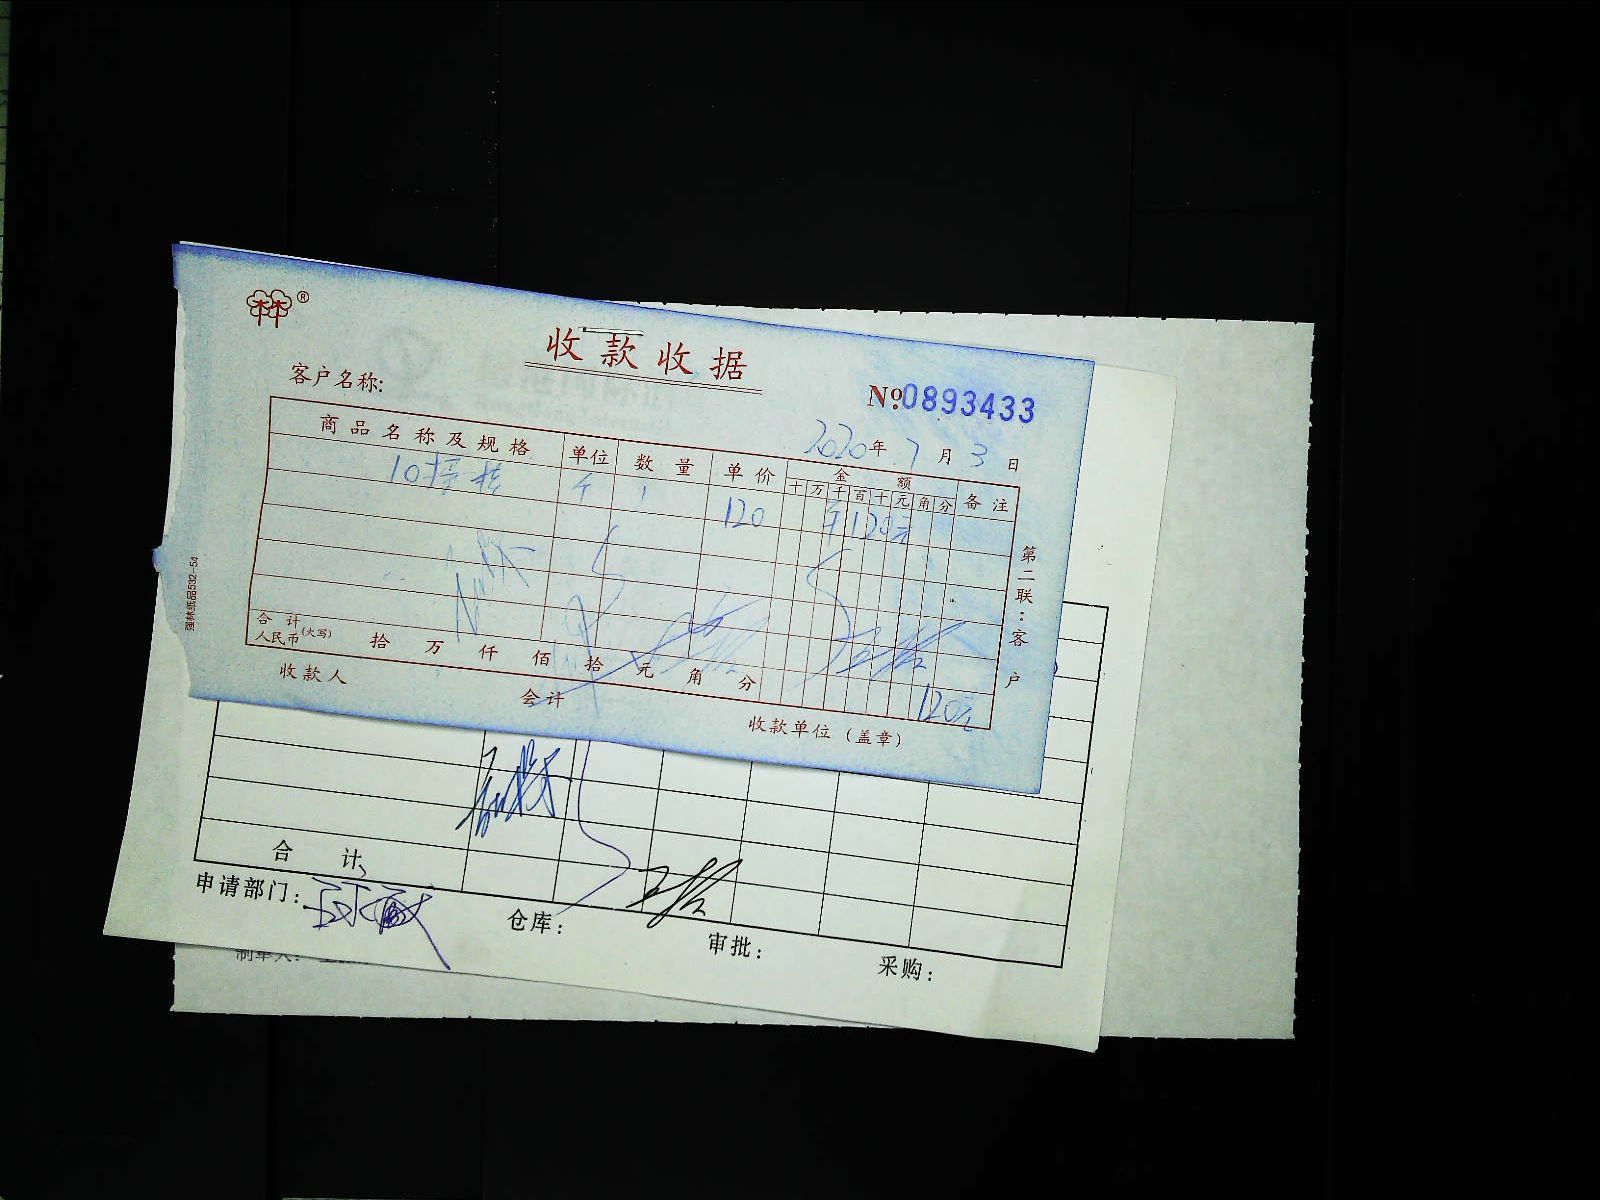 ®
收款收据
客户名称:
No.0893433
2020年7月3日
商品名称及规格 单位 数量 单价 金额 备注
十万千百十元角分
个 1 120 120元
合计
人民币(大写) 拾 万 仟 佰 拾 元 角 分 120元
收款人 会计 收款单位(盖章)
第二联:客户
强林纸品532-54
合 计
申请部门: 仓库: 审批: 采购:
制单人: